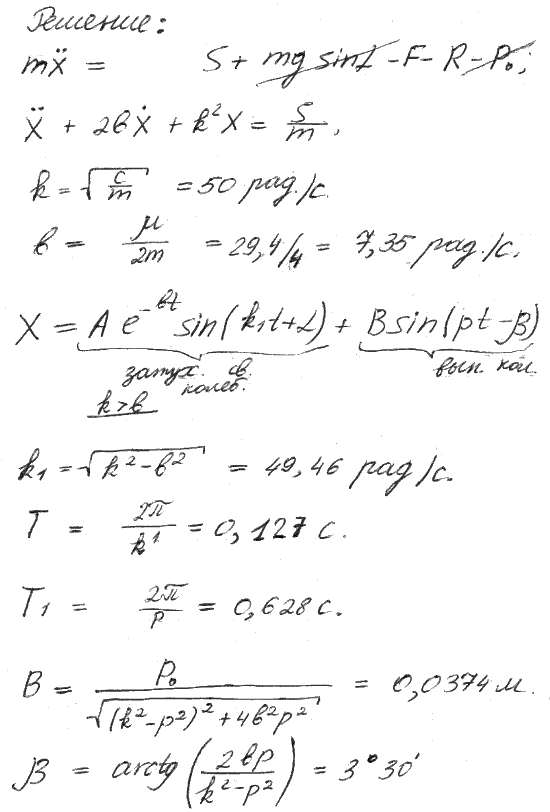 Решение:
mẍ = S + mg sinα - F - R - P₀;
ẍ + 2вẋ + k²x = S/m,
k = √(c/m) = 50 рад./с.
в = μ/2m = 29,4/4 = 7,35 рад./с.
X = A e^(-вt) sin(k₁t+α) + B sin(pt-β)
затух. св. колеб. вын. кол.
k>в
k₁ = √(k²-в²) = 49,46 рад/с.
T = 2π/k¹ = 0,127 с.
T₁ = 2π/p = 0,628 с.
B = P₀/√((k²-p²)²+4в²p²) = 0,0374 м.
β = arctg(2вp/(k²-p²)) = 3°30'